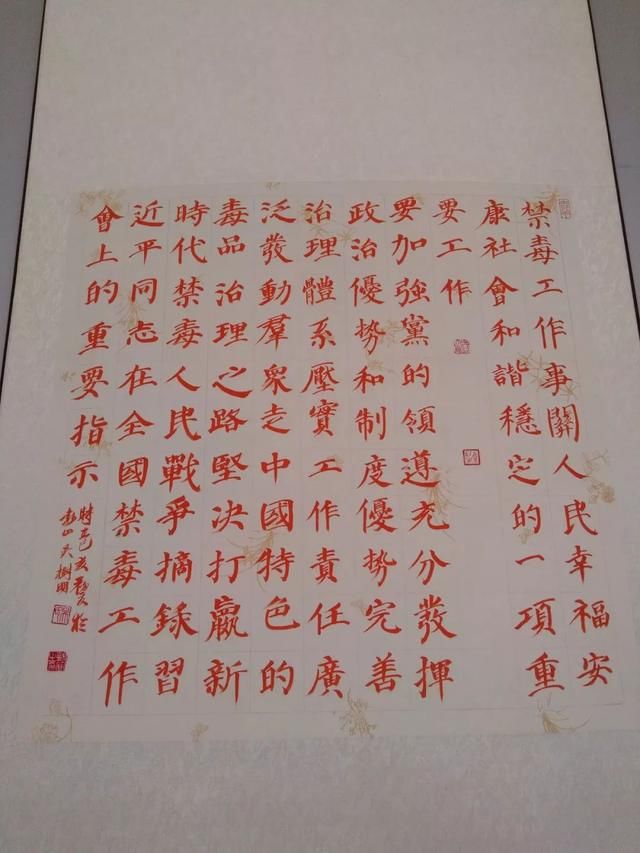 禁毒工作事關人民幸福安
康社會和諧穩定的一項重
要工作
要加強黨的領導充分發揮
政治優勢和制度優勢完善
治理體系壓實工作責任廣
泛發動羣衆走中國特色的
毒品治理之路堅決打贏新
時代禁毒人民戰爭摘錄習
近平同志在全國禁毒工作
會上的重要指示
時己亥